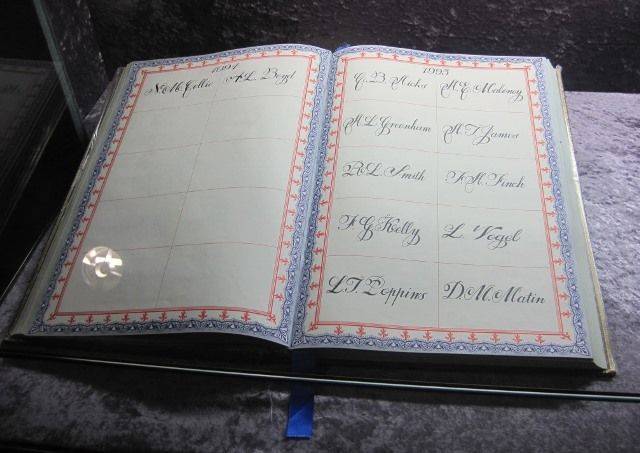 1994
N. M. Collie A. L. Boyd
1995
C. B. Hicks M. E. Maloney
A. L. Greenham A. T. James
R. L. Smith F. A. Finch
F. G. Kelly L. Vogel
L. T. Poppins D. M. Matin